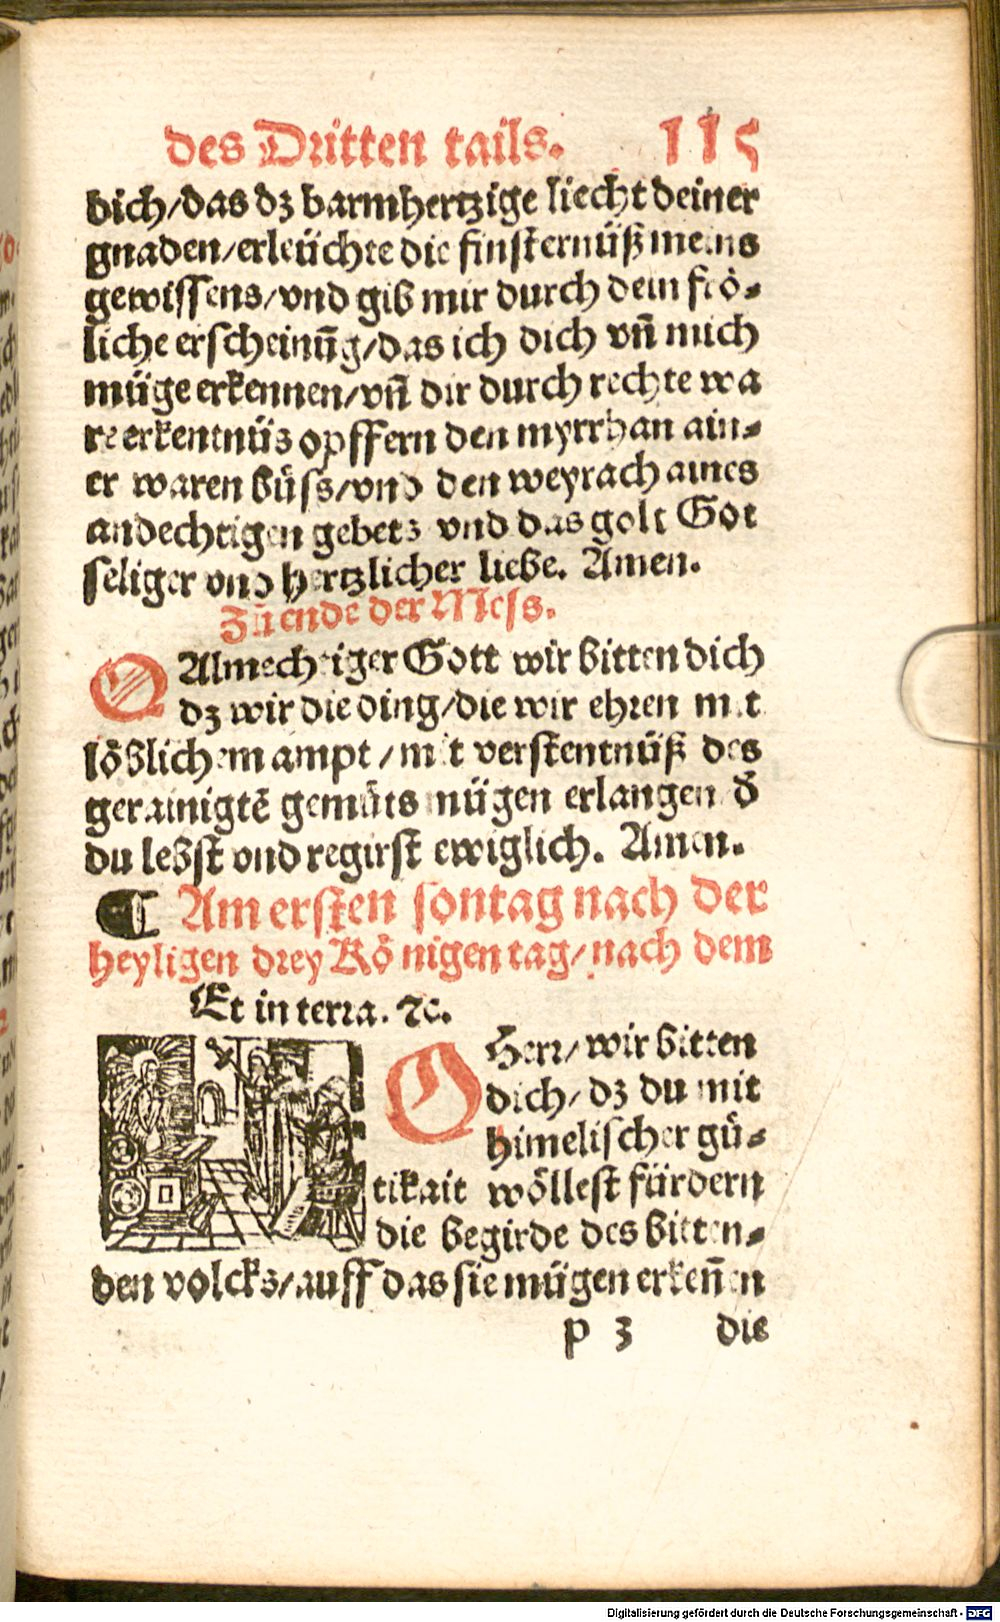 des Dritten tails. 115
dich/das dz barmhertzige liecht deiner
gnaden/erleüchte die finsternüß meins
gewissens/vnd gib mir durch dein frö⸗
liche erscheinūg/das ich dich vn̄ mich
müge erkennen/vn̄ dir durch rechte wa
re erkentnüs opffern den myrrhan ain⸗
er waren büss/vnd den weyrach aines
andechtigen gebets vnd das golt Got
seliger vnd hertzlicher liebe. Amen.
Zů ende der Mess.
O Almechtiger Gott wir bitten dich
dz wir die ding/die wir ehren mit
löblichem ampt/mit verstentnüß des
gerainigtē gemůts mügen erlangen d̄
du lebst vnd regirst ewiglich. Amen.
¶ Am ersten sontag nach der
heyligen drey Kö nigen tag/nach dem
Et in terra. ⁊c.
O Herr/wir bitten
dich/dz du mit
himelischer gü⸗
tikait wöllest fürdern
die begirde des bitten⸗
den volcks/auff das sie mügen erken̄en
p 3 die
Digitalisierung gefördert durch die Deutsche Forschungsgemeinschaft - DFG